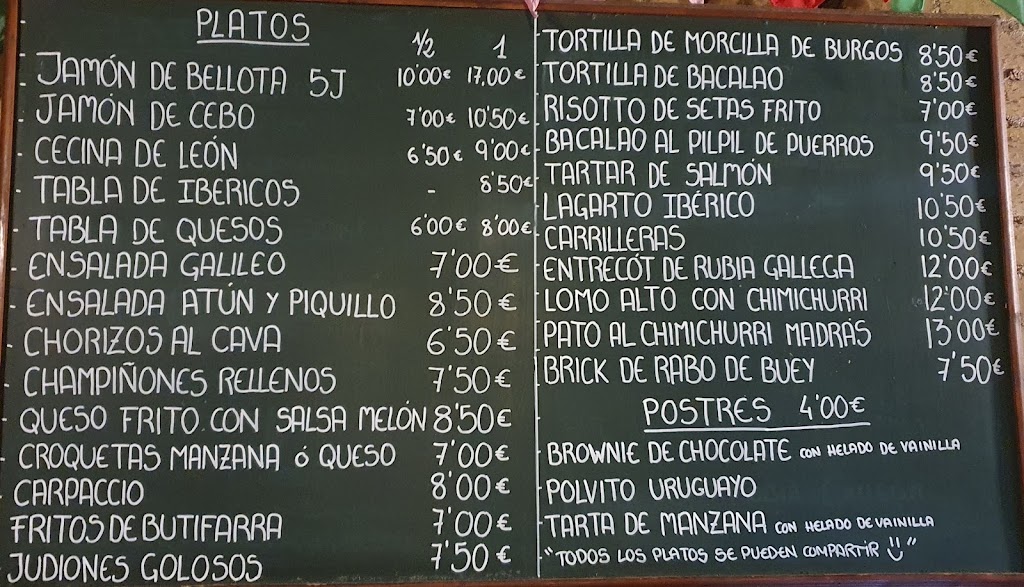 PLATOS
½ 1
- JAMÓN DE BELLOTA 5J 10'00€ 17,00€
- JAMÓN DE CEBO 7'00€ 10'50€
- CECINA DE LEÓN 6'50€ 9'00€
- TABLA DE IBERICOS - 8'50€
- TABLA DE QUESOS 6'00€ 8'00€
- ENSALADA GALILEO 7'00€
- ENSALADA ATÚN Y PIQUILLO 8'50€
- CHORIZOS AL CAVA 6'50€
- CHAMPIÑONES RELLENOS 7'50€
- QUESO FRITO CON SALSA MELÓN 8'50€
- CROQUETAS MANZANA ó QUESO 7'00€
- CARPACCIO 8'00€
- FRITOS DE BUTIFARRA 7'00€
- JUDIONES GOLOSOS 7'50€
- TORTILLA DE MORCILLA DE BURGOS 8'50€
- TORTILLA DE BACALAO 8'50€
- RISOTTO DE SETAS FRITO 7'00€
- BACALAO AL PILPIL DE PUERROS 9'50€
- TARTAR DE SALMÓN 9'50€
- LAGARTO IBÉRICO 10'50€
- CARRILLERAS 10'50€
- ENTRECÓT DE RUBIA GALLEGA 12'00€
- LOMO ALTO CON CHIMICHURRI 12'00€
- PATO AL CHIMICHURRI MADRÁS 13'00€
- BRICK DE RABO DE BUEY 7'50€
POSTRES 4'00€
- BROWNIE DE CHOCOLATE CON HELADO DE VAINILLA
- POLVITO URUGUAYO
- TARTA DE MANZANA CON HELADO DE VAINILLA
- "TODOS LOS PLATOS SE PUEDEN COMPARTIR"